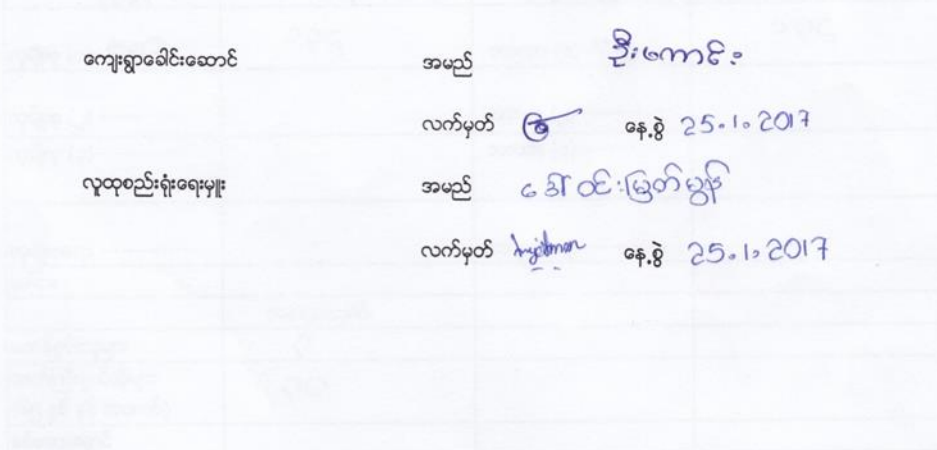 ကျေးရွာခေါင်းဆောင် အမည် ဦးဖေကောင်း
လက်မှတ် နေ့စွဲ 25.1.2017
လူထုစည်းရုံးရေးမှူး အမည် ဒေါ်ဝင်းမြတ်မွန်
လက်မှတ် နေ့စွဲ 25.1.2017